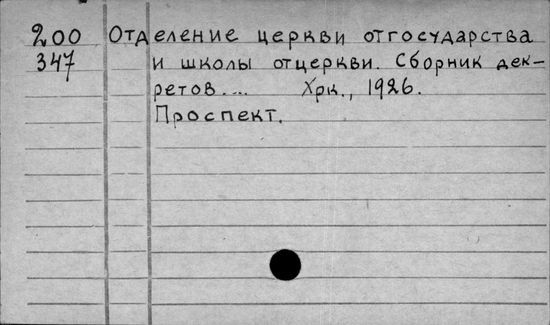 200 Отделение церкви отгосударства
347 и школы отцеркви. Сборник дек-
ретов.... Хрк., 1926.
Проспект.